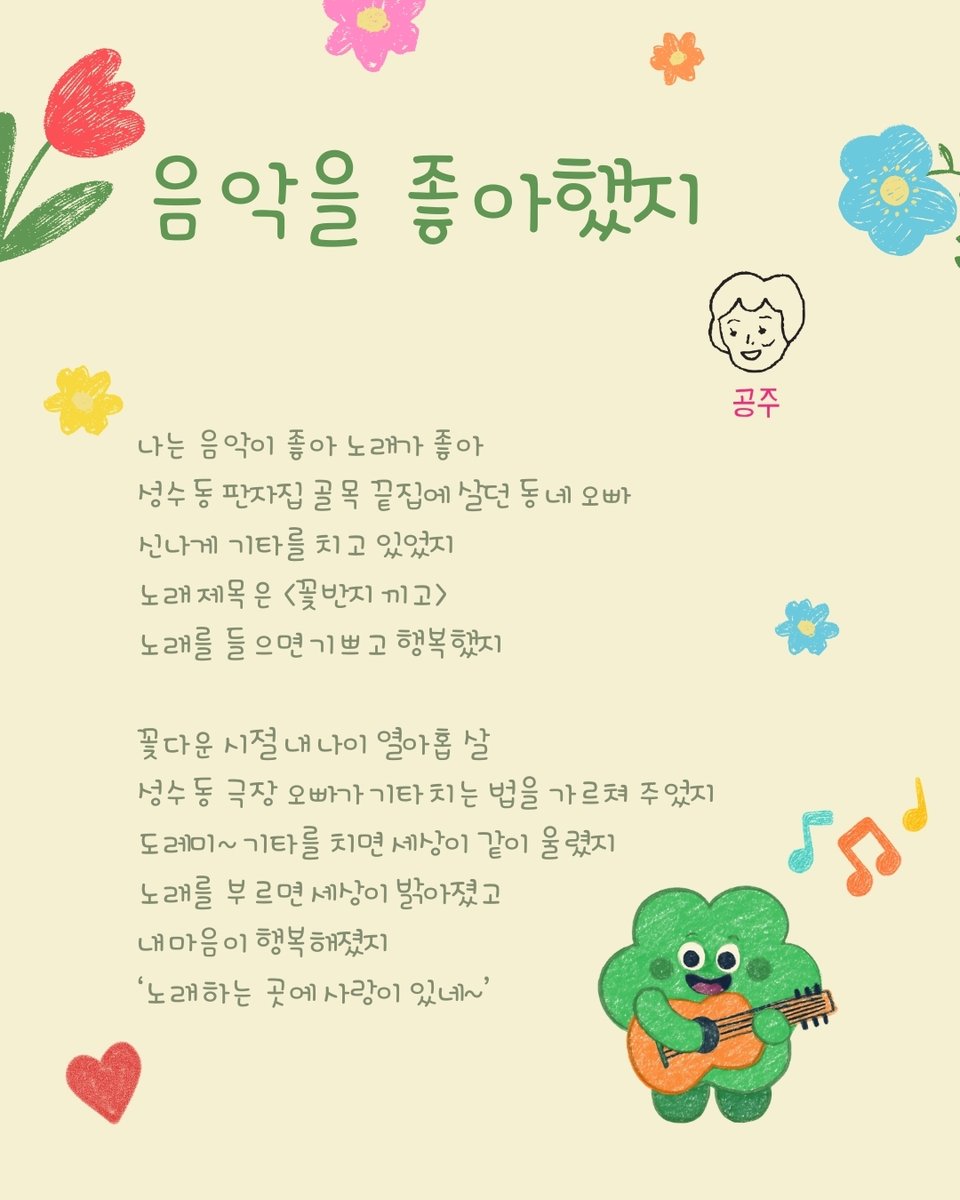 음악을 좋아했지
공주
나는 음악이 좋아 노래가 좋아
성수동 판자집 골목 끝집에 살던 동네 오빠
신나게 기타를 치고 있었지
노래 제목은 <꽃반지 끼고>
노래를 들으면 기쁘고 행복했지
꽃다운 시절 내 나이 열아홉 살
성수동 극장 오빠가 기타 치는 법을 가르쳐 주었지
도레미~ 기타를 치면 세상이 같이 울렸지
노래를 부르면 세상이 밝아졌고
내 마음이 행복해졌지
‘노래하는 곳에 사랑이 있네~’